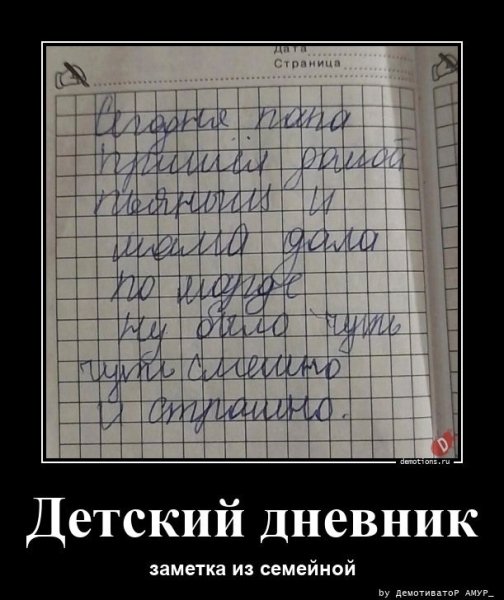 Дата
Страница
Сегодня папа
пришёл домой
пьяный и
мама дала
по морде
Ну было чуть
чуть смешно
и страшно.
demotions.ru
Детский дневник
заметка из семейной
by ДемотиватоР АМУР_